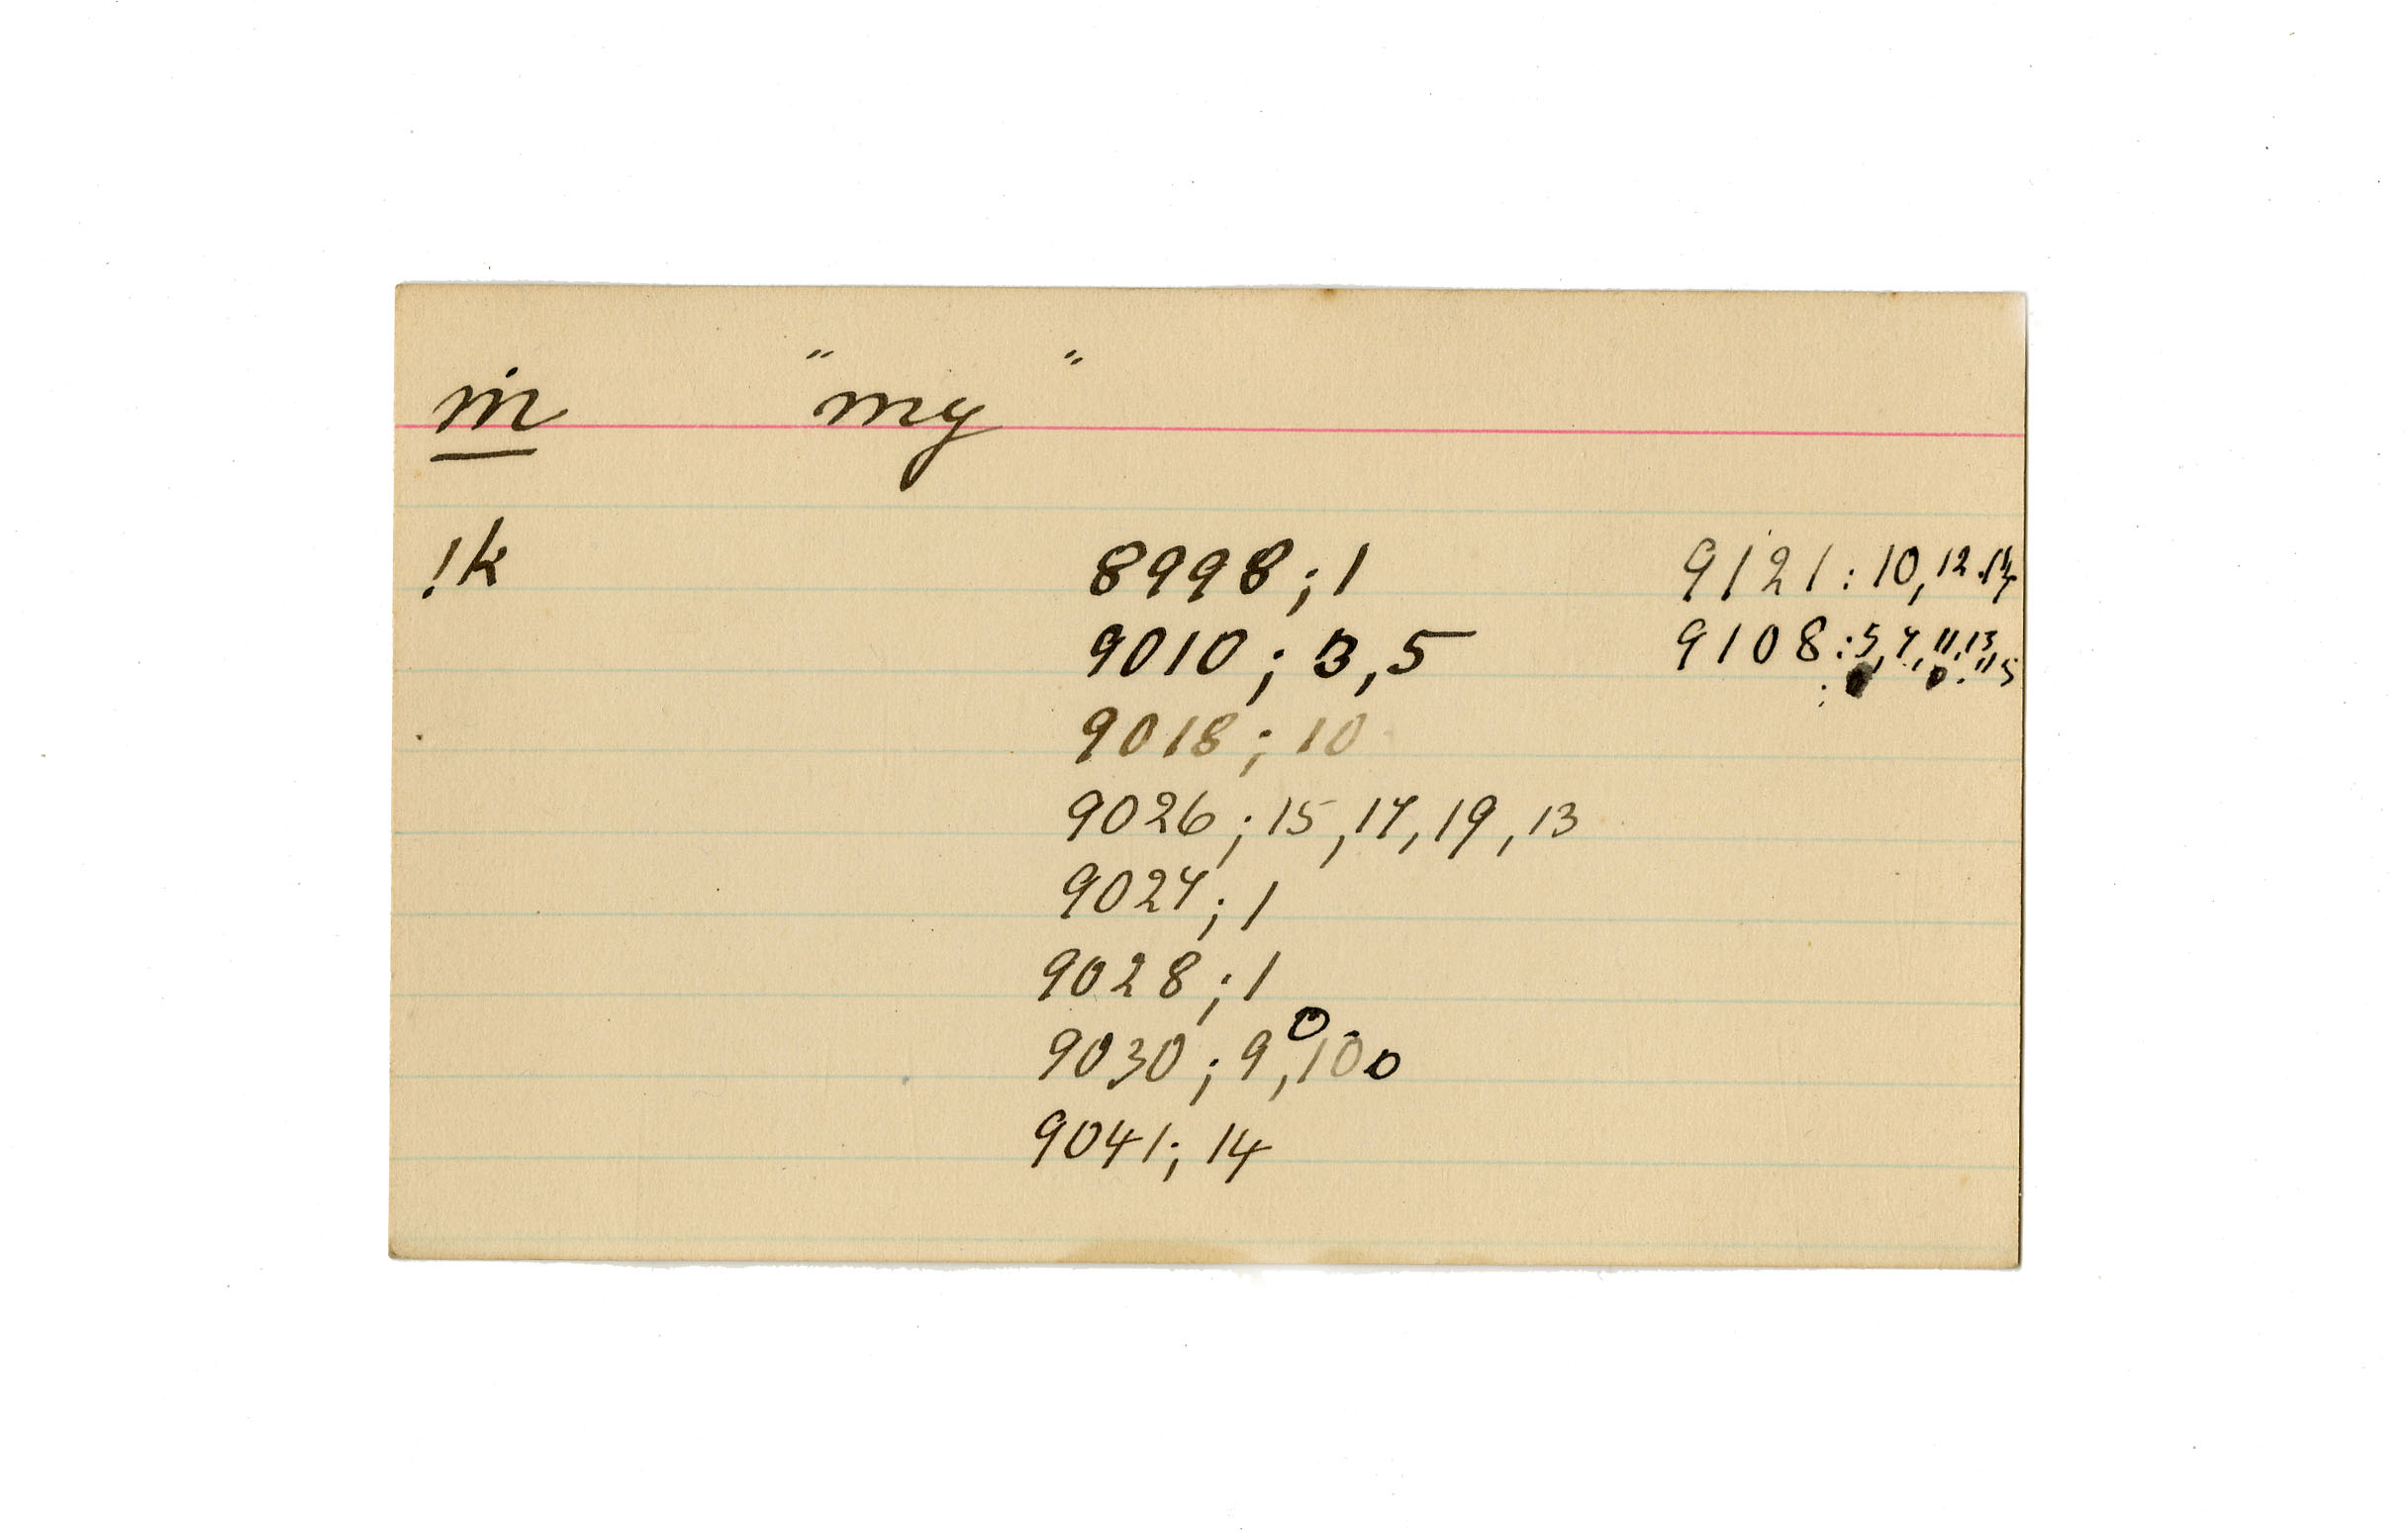 m̈ "my"
!k 8998;1 9121:10,12.14
9010; 3,5 9108:5,7,11,13,
9018;10 15
9026;15,17,19,13
9027;1
9028;1
9030;9,10
9041;14